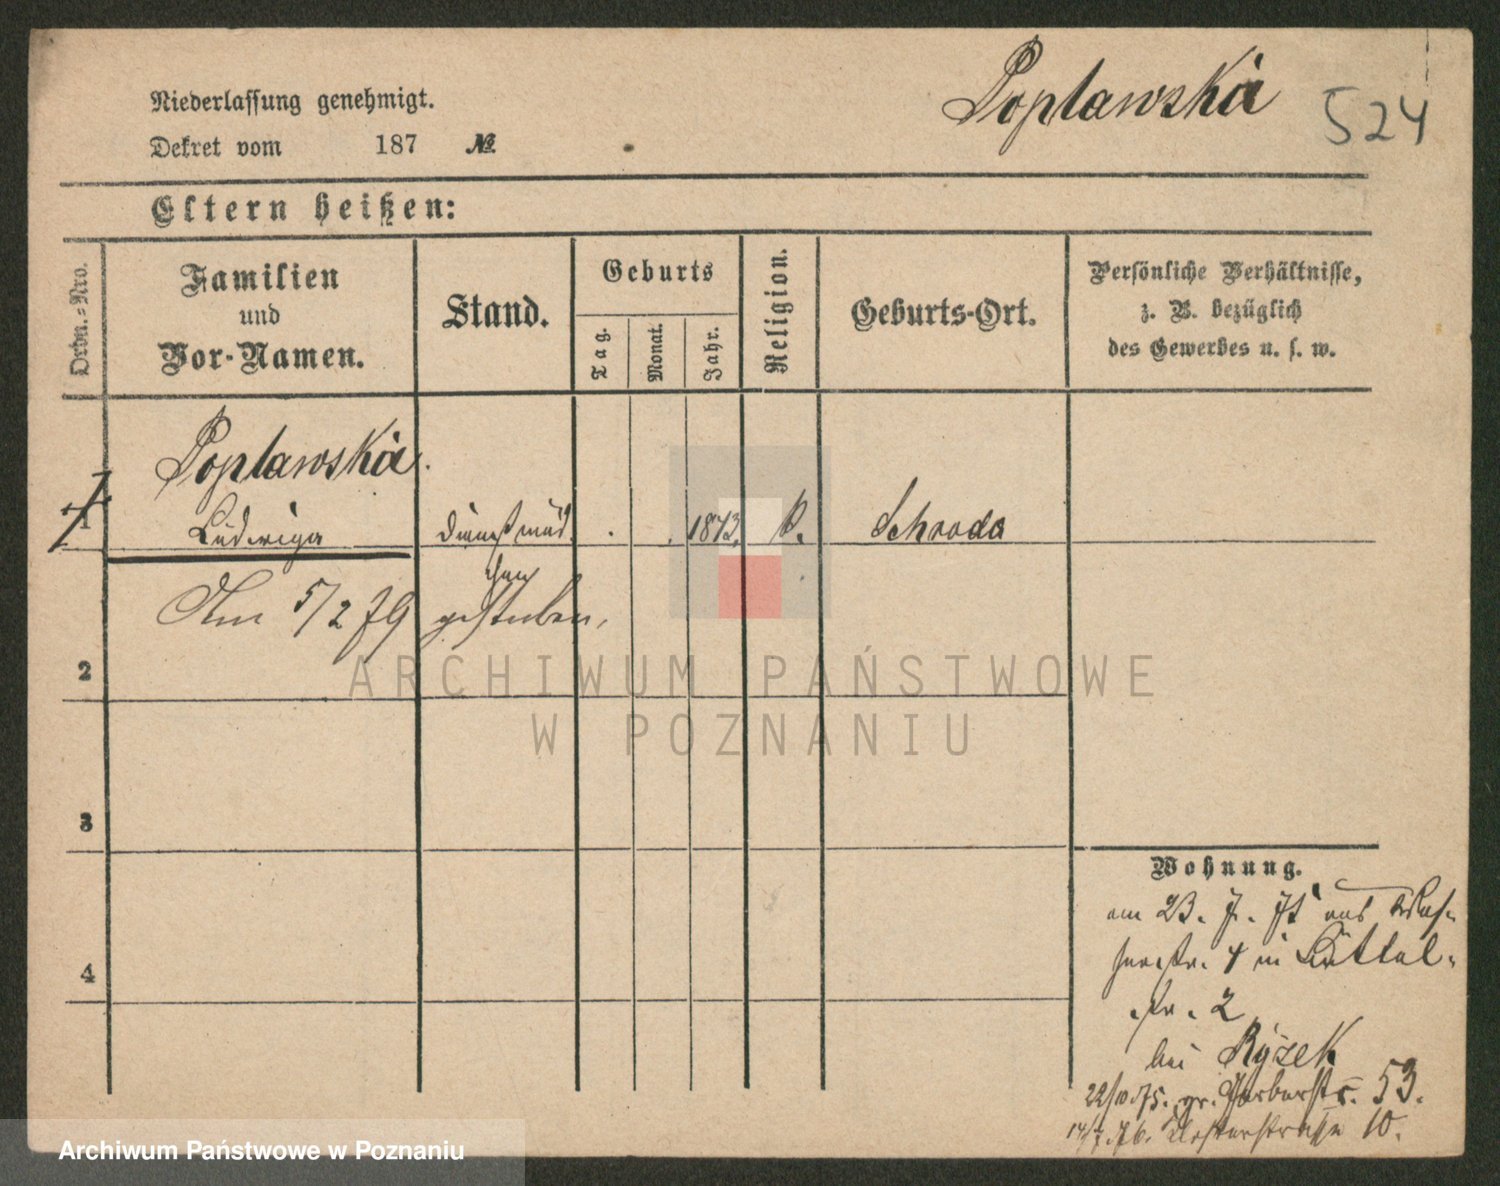 Poplawska
524
Niederlassung genehmigt.
Dekret vom 187 №
Eltern heißen:
Ordn.-Nro.
Familien
und
Vor-Namen.
Stand.
Geburts
Tag.
Monat.
Jahr.
Religion.
Geburts-Ort.
Persönliche Verhältnisse,
z. B. bezüglich
des Gewerbes u. s. w.
Poplawska
1 Ludwiga Dienstmäd 1873. k. Schroda
chen
Am 5/2 79 gestorben.
2
3
4
Wohnung.
am 23. 7. aus
str. 4 in Büttel-
str. 2
bei Ryzek
22/10 75. gr. Gerberstr. 53.
76. Klosterstraße 10.
ARCHIWUM PAŃSTWOWE
W POZNANIU
Archiwum Państwowe w Poznaniu